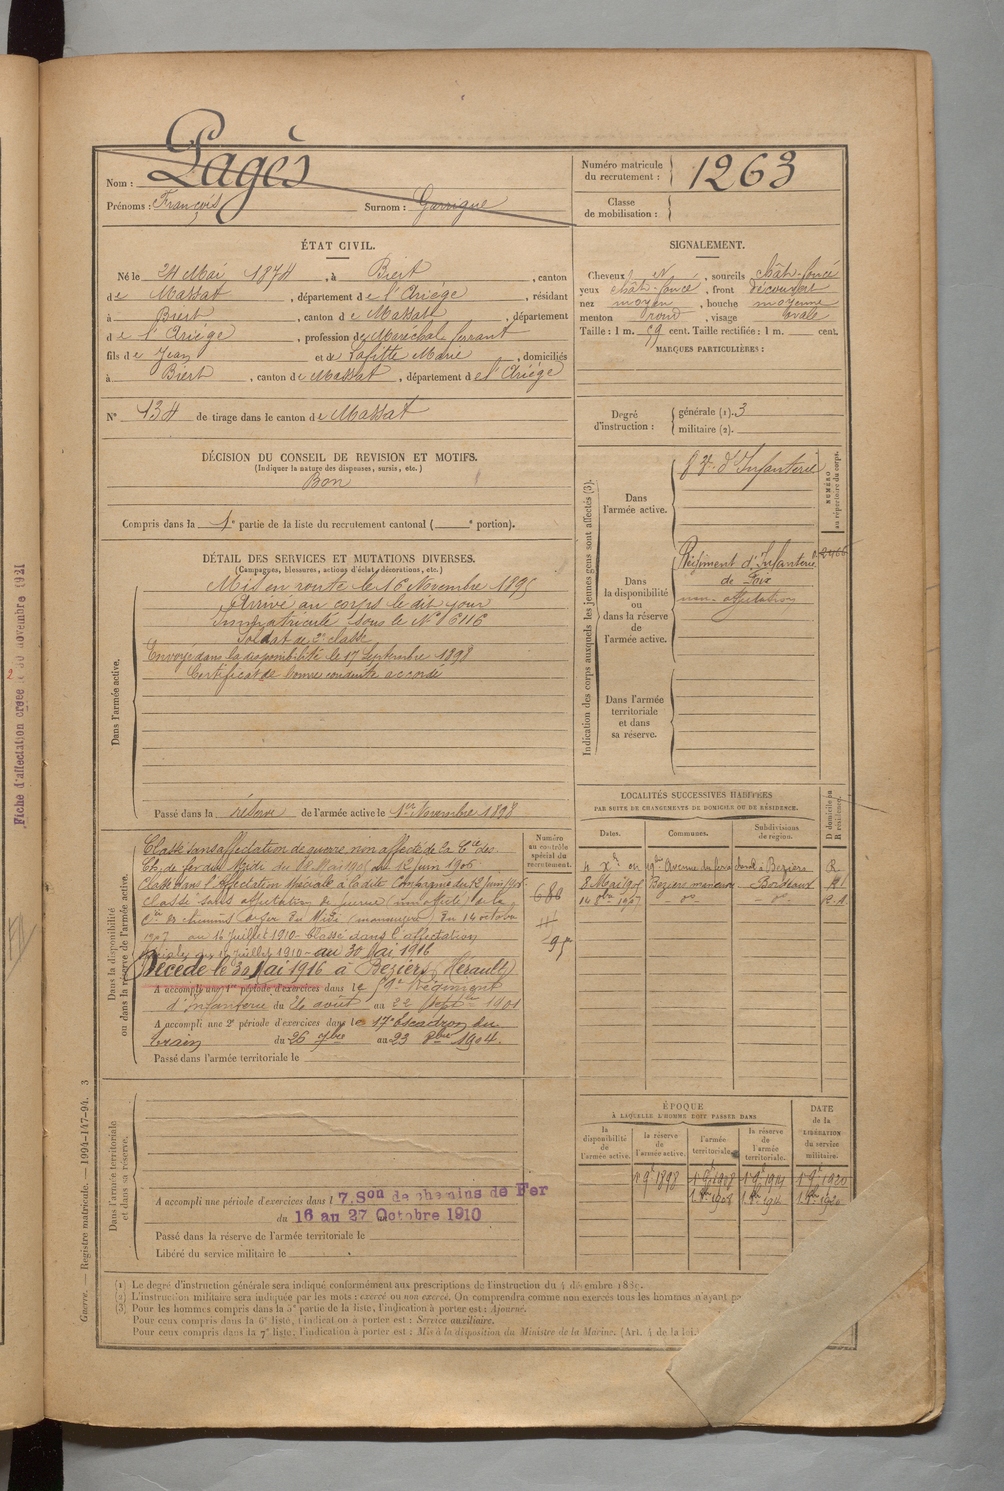 Nom : Pagès
Prénoms : François Surnom : Garrigue
Numéro matricule du recrutement : 1263
Classe de mobilisation :
ÉTAT CIVIL.
Né le 24 Mai 1874, à Biert, canton
de Massat, département de l'Ariége, résidant
à Biert, canton de Massat, département
de l'Ariége, profession de Maréchal ferrant
fils de Jean et de Lafitte Marie, domiciliés
à Biert, canton de Massat, département de l'Ariége
N° 134 de tirage dans le canton de Massat
SIGNALEMENT.
Cheveux N, sourcils chât-foncé
yeux chât-foncé, front découvert
nez moyen, bouche moyenne
menton rond, visage ovale
Taille : 1 m. 59 cent. Taille rectifiée : 1 m. cent.
MARQUES PARTICULIÈRES :
Degré d'instruction : générale (1). 3
militaire (2).
DÉCISION DU CONSEIL DE REVISION ET MOTIFS.
(Indiquer la nature des dispenses, sursis, etc.)
Bon
Compris dans la 1e partie de la liste du recrutement cantonal ( e portion).
DÉTAIL DES SERVICES ET MUTATIONS DIVERSES.
(Campagnes, blessures, actions d'éclat, décorations, etc.)
Dans l'armée active.
Mis en route le 16 Novembre 1895
Arrivé au corps le dit jour
Immatriculé sous le N° 6116
Soldat de 2e classe
Envoyé dans la disponibilité le 17 Septembre 1898
Certificat de bonne conduite accordé
Passé dans la réserve de l'armée active le 1er Novembre 1898
Indication des corps auxquels les jeunes gens sont affectés (3).
Dans l'armée active.
d'Infanterie
NUMÉRO au répertoire du corps.
Dans la disponibilité ou dans la réserve de l'armée active.
Régiment d'Infanterie
de Foix
non-affectation
Dans l'armée territoriale et dans sa réserve.
LOCALITÉS SUCCESSIVES HABITÉES
PAR SUITE DE CHANGEMENTS DE DOMICILE OU DE RÉSIDENCE.
Dates. Communes. Subdivisions de région. D domicile ou R résidence.
Béziers R
8 Mai 1905 Béziers Bordeaux
Dans la disponibilité ou dans la réserve de l'armée active.
Numéro au contrôle spécial du recrutement.
680
Classé sans affectation de guerre non affecté de la Cie des
Ch. de fer du Midi du 8 Mai 1905 au 12 juin 1905
Classé dans l'affectation spéciale à ladite Compagnie du 12 juin 1905
Classé sans affectation de guerre (non affecté) de la
Cie des chemins de fer du Midi (manœuvre) du 14 octobre
1907 au 16 juillet 1910 - Classé dans l'affectation
spéciale du 16 juillet 1910 - au 30 Mai 1916
Décédé le 30 Mai 1916 à Béziers (Hérault)
A accompli une 1re période d'exercices dans le 59e Régiment
d'infanterie du 26 août au 22 Septbre 1901
A accompli une 2e période d'exercices dans le 17e Escadron du
train du 26 7bre au 23 8bre 1904.
Passé dans l'armée territoriale le
Dans l'armée territoriale et dans sa réserve.
A accompli une période d'exercices dans l 7.Son de chemins de Fer
du 16 au 27 Octobre 1910
Passé dans la réserve de l'armée territoriale le
Libéré du service militaire le
ÉPOQUE
À LAQUELLE L'HOMME DOIT PASSER DANS
DATE de la LIBÉRATION du service militaire.
la disponibilité de l'armée active. la réserve de l'armée active. l'armée territoriale. la réserve de l'armée territoriale.
(1) Le degré d'instruction générale sera indiqué conformément aux prescriptions de l'instruction du 4 décembre 1889.
(2) L'instruction militaire sera indiquée par les mots : exercé ou non exercé. On comprendra comme non exercés tous les hommes n'ayant pa
(3) Pour les hommes compris dans la 5e partie de la liste, l'indication à porter est : Ajourné.
Pour ceux compris dans la 6e liste, l'indication à porter est : Service auxiliaire.
Pour ceux compris dans la 7e liste, l'indication à porter est : Mis à la disposition du Ministre de la Marine. (Art. 4 de la loi.
Guerre. — Registre matricule. — 1994-147-94. 3
Fiche d'affectation créée le 30 novembre 1921